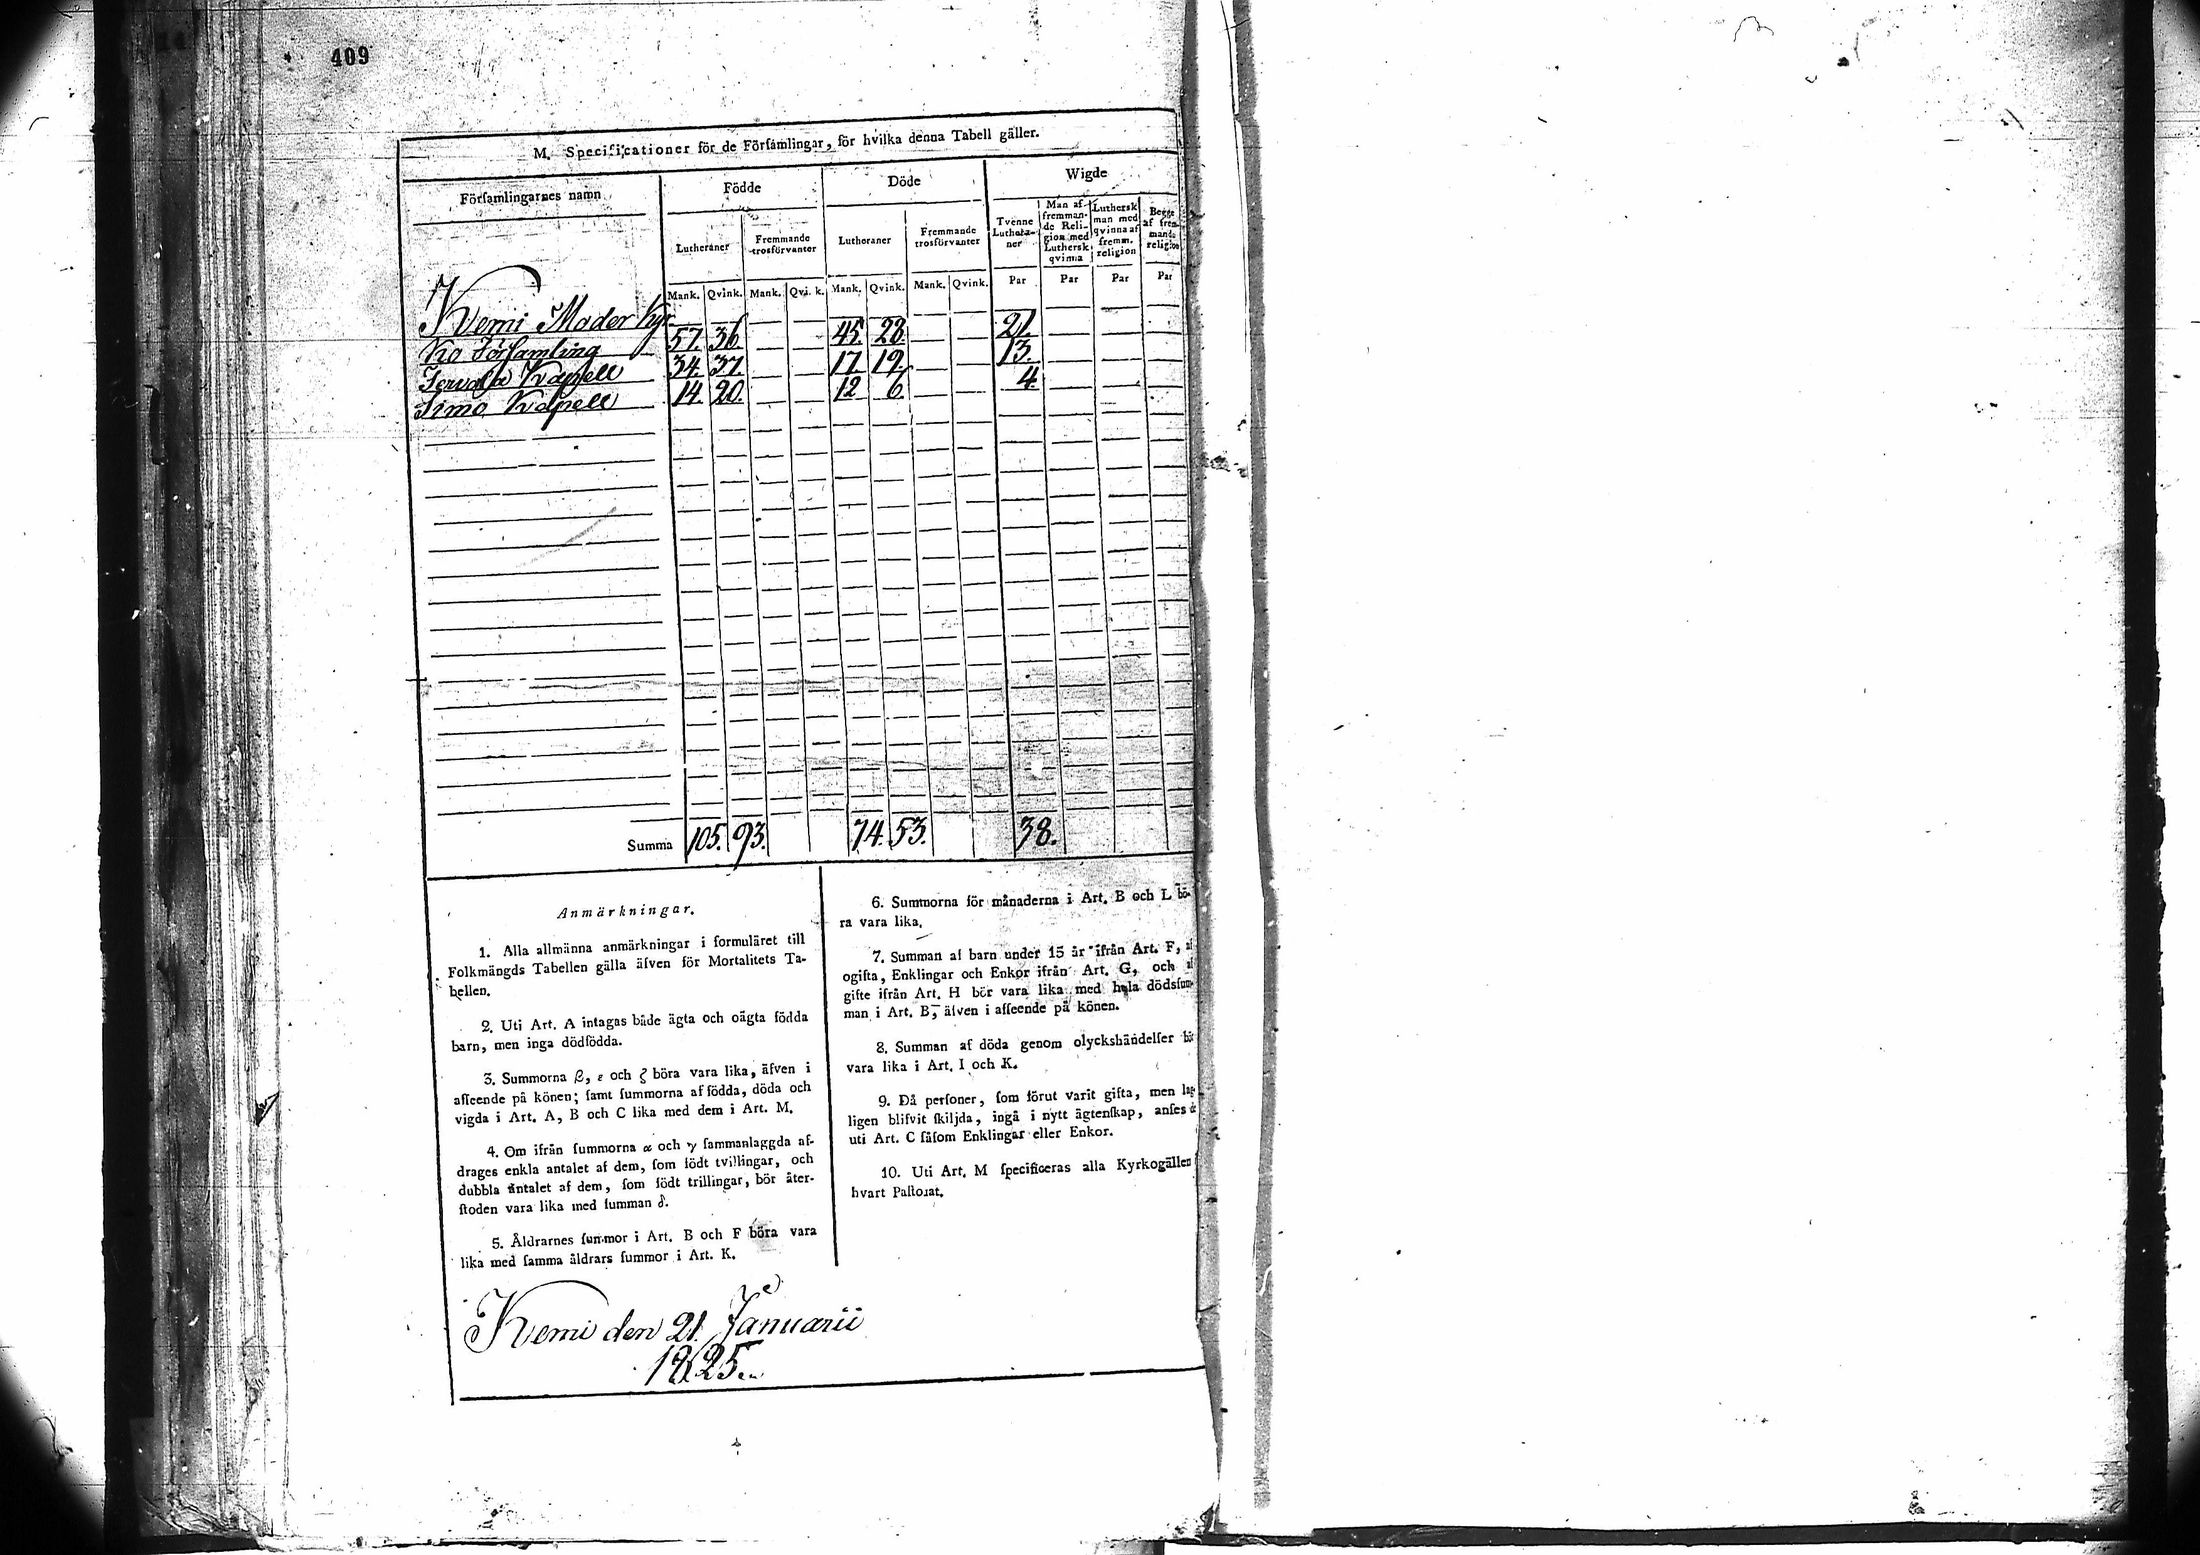 409
M. Specificationer för de Förſamlingar, för hvilka denna Tabell gäller.
Förſamlingarnes namn Födde Döde Wigde
Lutheraner Fremmande trosförvanter Lutheraner Fremmande trosförvanter Tvenne Lutheraner Man af fremmande Religion med Luthersk qvinna Luthersk man med qvinna af fremm. religion Begge af fremmande religion
Mank. Qvink. Mank. Qvink. Mank. Qvink. Mank. Qvink. Par Par Par Par
Kemi Moder Kyr
ko Förſamling 57. 36. 45. 28. 21.
Tervola Kapell 34. 37 17 19. 13.
Simo Kapell 14. 20. 12 6. 4.
Summa 105. 93. 74. 53. 38.
Anmärkningar.
1. Alla allmänna anmärkningar i formuläret till
Folkmängds Tabellen gälla äfven för Mortalitets Ta-
bellen.
2. Uti Art. A intagas både ägta och oägta födda
barn, men inga dödfödda.
3. Summorna β, ε och ζ böra vara lika, äfven i
afſeende på könen; ſamt ſummorna af födda, döda och
vigda i Art. A, B och C lika med dem i Art. M.
4. Om ifrån ſummorna α och γ ſammanlaggda af-
drages enkla antalet af dem, ſom födt tvillingar, och
dubbla antalet af dem, ſom födt trillingar, bör åter-
ſtoden vara lika med ſumman δ.
5. Åldrarnes ſummor i Art. B och F böra vara
lika med ſamma åldrars ſummor i Art. K.
6. Summorna för månaderna i Art. B och L bö-
ra vara lika.
7. Summan af barn under 15 år ifrån Art. F, af
ogifta, Enklingar och Enkor ifrån Art. G, och af
gifte ifrån Art. H bör vara lika med hela dödsſum-
man i Art. B, äfven i afſeende på könen.
8. Summan af döda genom olyckshändelſer bör
vara lika i Art. I och K.
9. Då perſoner, ſom förut varit gifta, men lag-
ligen blifvit ſkiljda, ingå i nytt ägtenſkap, anſes de
uti Art. C ſåſom Enklingar eller Enkor.
10. Uti Art. M ſpecificeras alla Kyrkogällen
hvart Paſtorat.
Kemi den 21 Januarii
1825